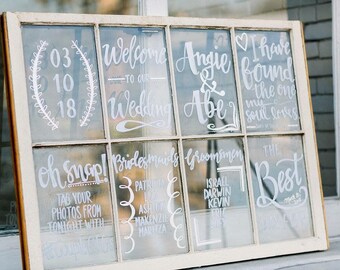 03
10
18
Welcome
TO OUR
Wedding
Angie
&
Abe
I have
found
the one
my soul loves
oh snap!
TAG YOUR
PHOTOS FROM
TONIGHT WITH
Bridesmaids
MACKENZIE
Groomsmen
ISRAEL
DARWIN
KEVIN
THE
Best